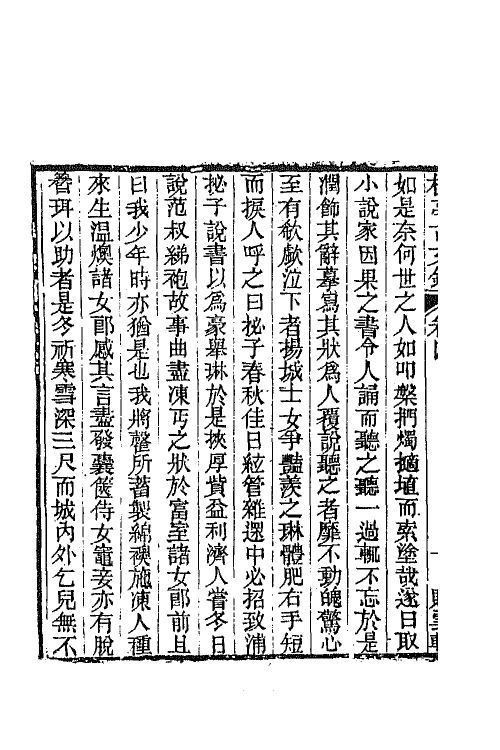 如是奈何世之人如叩槃捫燭擿埴而索塗哉遂日取
小說家因果之書令人誦而聽之聽一過輒不忘於是
潤飾其辭摹寫其狀爲人覆說聽之者靡不動魄驚心
至有欷歔泣下者揚城士女爭豔羨之琳體肥右手短
而捩人呼之曰㧙子春秋佳日絃管雜遝中必招致浦
㧙子說書以爲豪舉琳於是挾厚貲益利濟人嘗冬日
說范叔綈袍故事曲盡凍丐之狀於富室諸女郎前且
曰我少年時亦猶是也我將罄所蓄製綿襖施凍人種
來生温燠諸女郎感其言盡發囊篋侍女竈妾亦有脫
簪珥以助者是冬祈寒雪深三尺而城內外乞兒無不